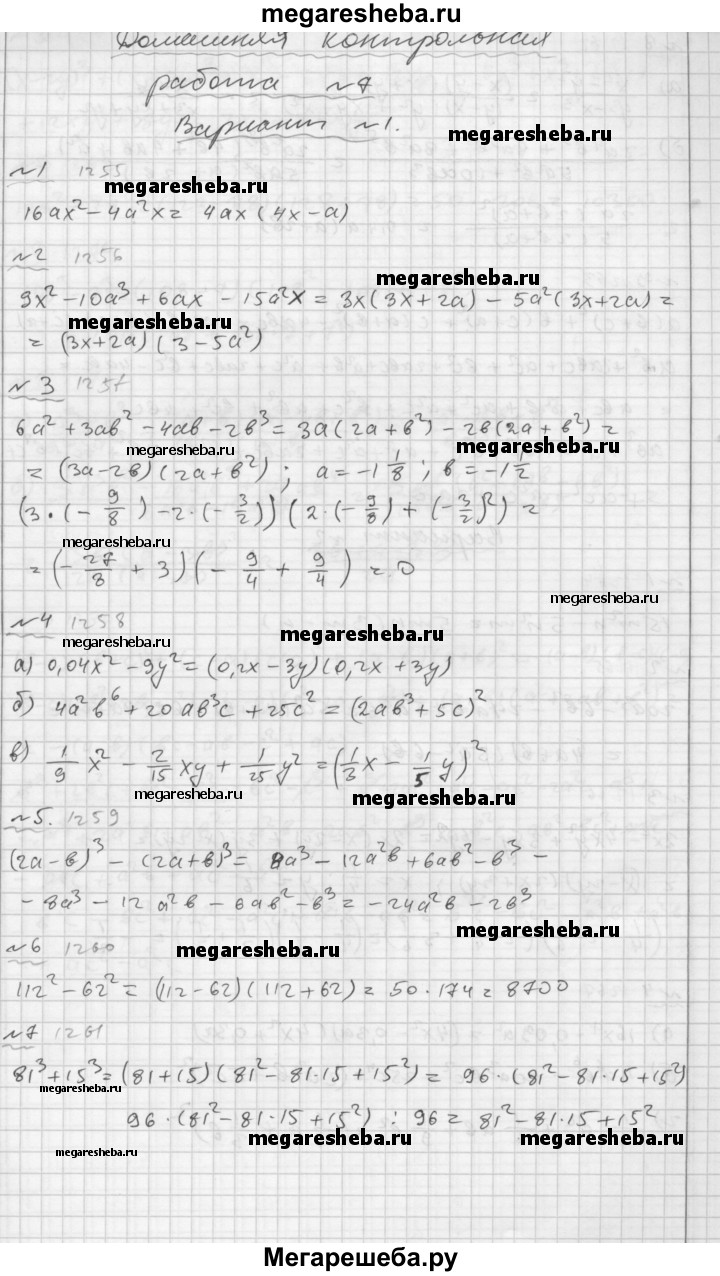 megaresheba.ru
Домашняя контрольная
работа №7
Вариант №1.
megaresheba.ru
№1 1255
megaresheba.ru
16ax² - 4a²x = 4ax(4x-a)
№2 1256
megaresheba.ru
9x² - 10a³ + 6ax - 15a²x = 3x(3x+2a) - 5a²(3x+2a) =
megaresheba.ru
= (3x+2a)(3-5a²)
№3 1257
6a² + 3ab² - 4ab - 2b³ = 3a(2a+b²) - 2b(2a+b²) =
megaresheba.ru
= (3a-2b)(2a+b²); a = -1 1/8; b = -1 1/2
(3·(-9/8) - 2·(-3/2))(2·(-9/8) + (-3/2)²) =
megaresheba.ru
= (-27/8 + 3)(-9/4 + 9/4) = 0
megaresheba.ru
№4 1258
megaresheba.ru
megaresheba.ru
а) 0,04x² - 9y² = (0,2x-3y)(0,2x+3y)
б) 4a²b⁶ + 20ab³c + 25c² = (2ab³+5c)²
в) 1/9 x² - 2/15 xy + 1/25 y² = (1/3 x - 1/5 y)²
megaresheba.ru
megaresheba.ru
№5. 1259
(2a-b)³ - (2a+b)³ = 8a³ - 12a²b + 6ab² - b³ -
- 8a³ - 12a²b - 6ab² - b³ = -24a²b - 2b³
megaresheba.ru
№6 1260
megaresheba.ru
112² - 62² = (112-62)(112+62) = 50·174 = 8700
№7 1261
81³+15³ = (81+15)(81²-81·15+15²) = 96·(81²-81·15+15²)
megaresheba.ru
96·(81²-81·15+15²) : 96 = 81²-81·15+15²
megaresheba.ru
megaresheba.ru
megaresheba.ru
Мегарешеба.ру